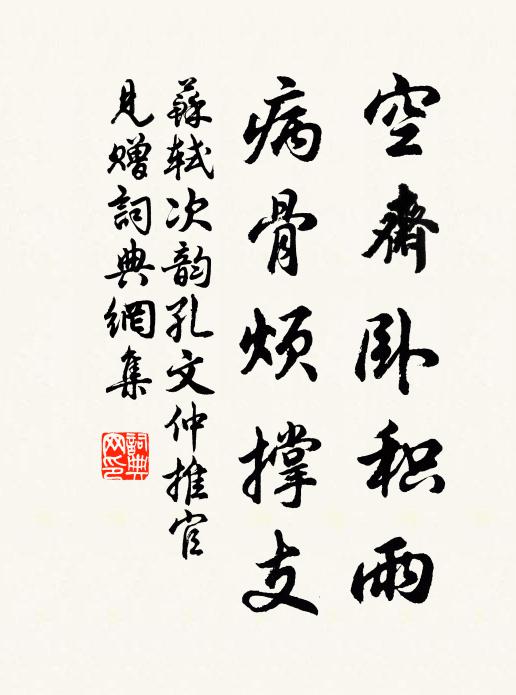 空齋卧积雨
病骨烦撑支
蘇軾次韵孔文仲推官
見赠詞典網集
詞典網印